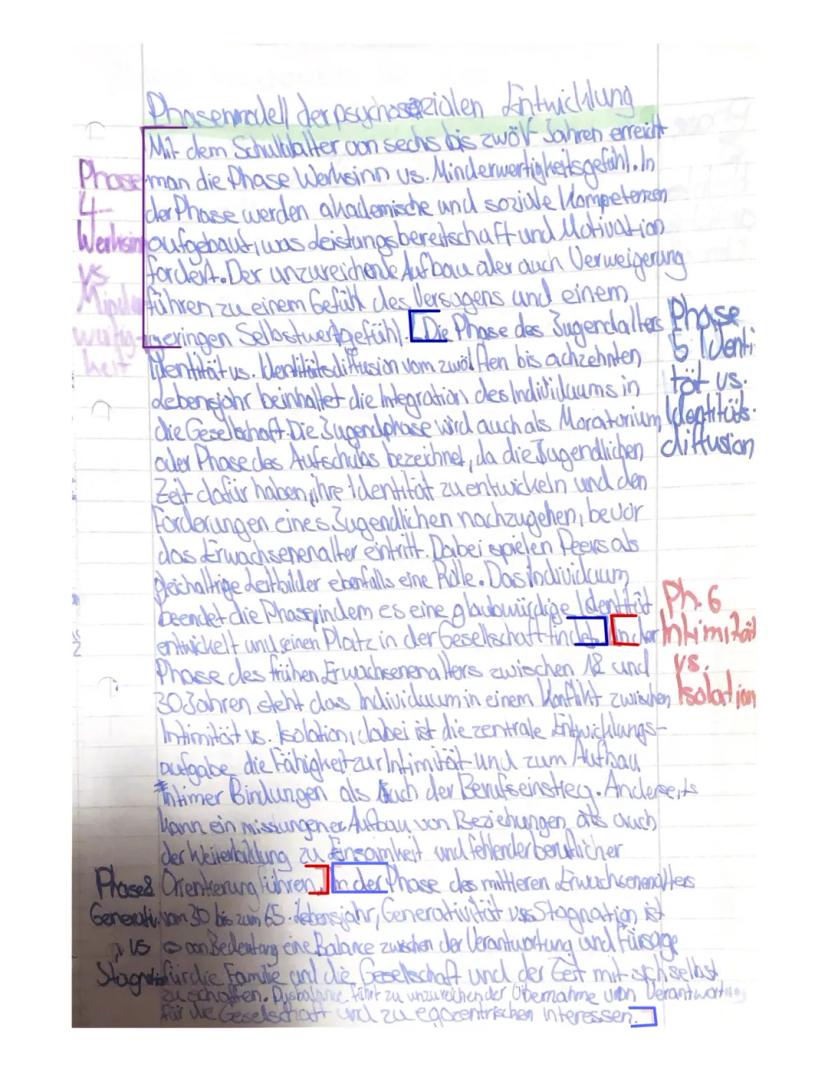 Phasenmodell der psychosozialen Entwicklung
Mit dem Schulalter von sechs bis zwölf Jahren erreicht
man die Phase Werksinn vs. Minderwertigkeitsgefühl. In
der Phase werden akademische und soziale Kompetenzen
aufgebaut, was Leistungsbereitschaft und Motivation
fordert. Der unzureichende Aufbau aber auch Verweigerung
führen zu einem Gefühl des Versagens und einem
geringen Selbstwertgefühl. Die Phase des Jugendalters
Identität vs. Identitätsdiffusion vom zwölften bis achzehnten
Lebensjahr beinhaltet die Integration des Individuums in
die Gesellschaft. Die Jugendphase wird auch als Moratorium
oder Phase des Aufschubs bezeichnet, da die Jugendlichen
Zeit dafür haben, ihre Identität zu entwickeln und den
Forderungen eines Jugendlichen nachzugehen, bevor
das Erwachsenenalter eintritt. Dabei spielen Peers als
gleichaltrige Leitbilder ebenfalls eine Rolle. Das Individuum
beendet die Phase, indem es eine glaubwürdige Identität
entwickelt und seinen Platz in der Gesellschaft findet. In der
Phase des frühen Erwachsenenalters zwischen 18 und
30 Jahren steht das Individuum in einem Konflikt zwischen
Intimität vs. Isolation, dabei ist die zentrale Entwicklungs-
aufgabe die Fähigkeit zur Intimität und zum Aufbau
intimer Bindungen als auch der Berufseinstieg. Anderseits
kann ein missungener Aufbau von Beziehungen als auch
der Weiterbildung zu Einsamkeit und fehlender beruflicher
Orientierung führen. In der Phase des mittleren Erwachsenenalters
von 30 bis zum 65. Lebensjahr, Generativität vs. Stagnation ist
von Bedeutung eine Balance zwischen der Verantwortung und Fürsorge
für die Familie und die Gesellschaft und der Zeit mit sich selbst
zu schaffen. Dysbalance führt zu unzureichender Übernahme von Verantwortung
für die Gesellschaft und zu egozentrischen Interessen.
Phase
4
Werksinn
vs
Minder
wertig-
keit
Phase
5 Identi
tät vs.
Identitäts-
diffusion
Ph. 6
Intimität
vs.
Isolation
Phase 8
Generativ.
vs
Stagnation